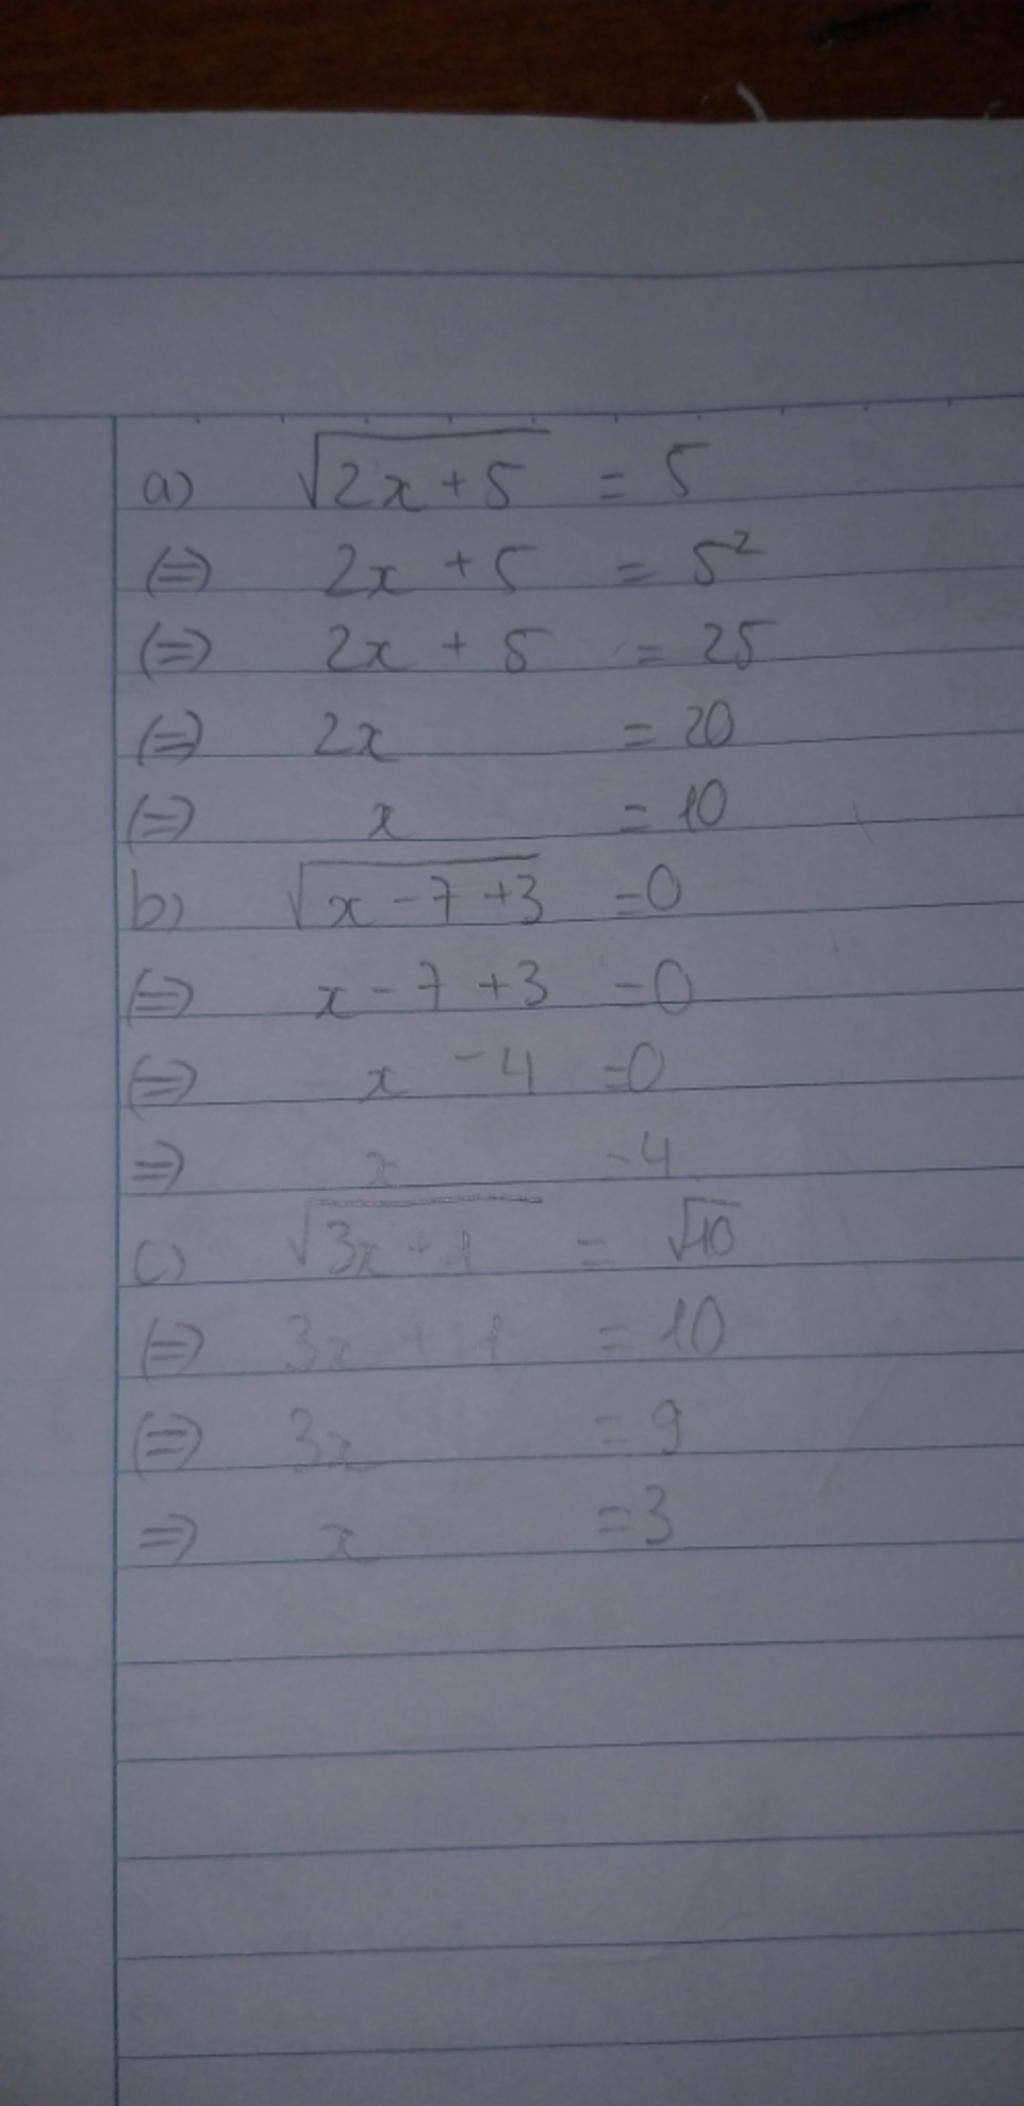 a) √(2x+5) = 5
(=) 2x + 5 = 5²
(=) 2x + 5 = 25
(=) 2x = 20
(=) x = 10
b) √(x-7+3) =0
(=) x-7+3 =0
(=) x -4 =0
=) x =4
c) √(3x+1) = √10
(=) 3x + 1 = 10
(=) 3x = 9
=) x =3